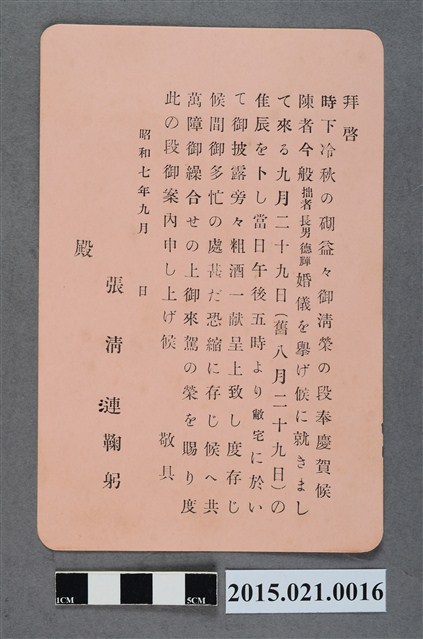 拜啓
時下冷秋の砌益々御淸榮の段奉慶賀候
陳者今般拙者長男德輝婚儀を擧げ候に就きまし
て來る九月二十九日(舊八月二十九日)の
佳辰を卜し當日午後五時より敝宅に於い
て御披露旁々粗酒一献呈上致し度存じ
候間御多忙の處甚だ恐縮に存じ候へ共
萬障御繰合せの上御來駕の榮を賜り度
此の段御案內申し上げ候 敬具
昭和七年九月 日
張淸漣鞠躬
殿
1CM
5CM
2015.021.0016